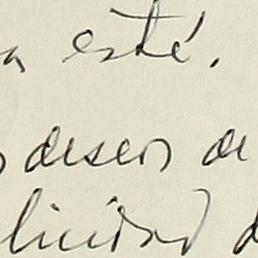 a esté.
deseos de
licidad d